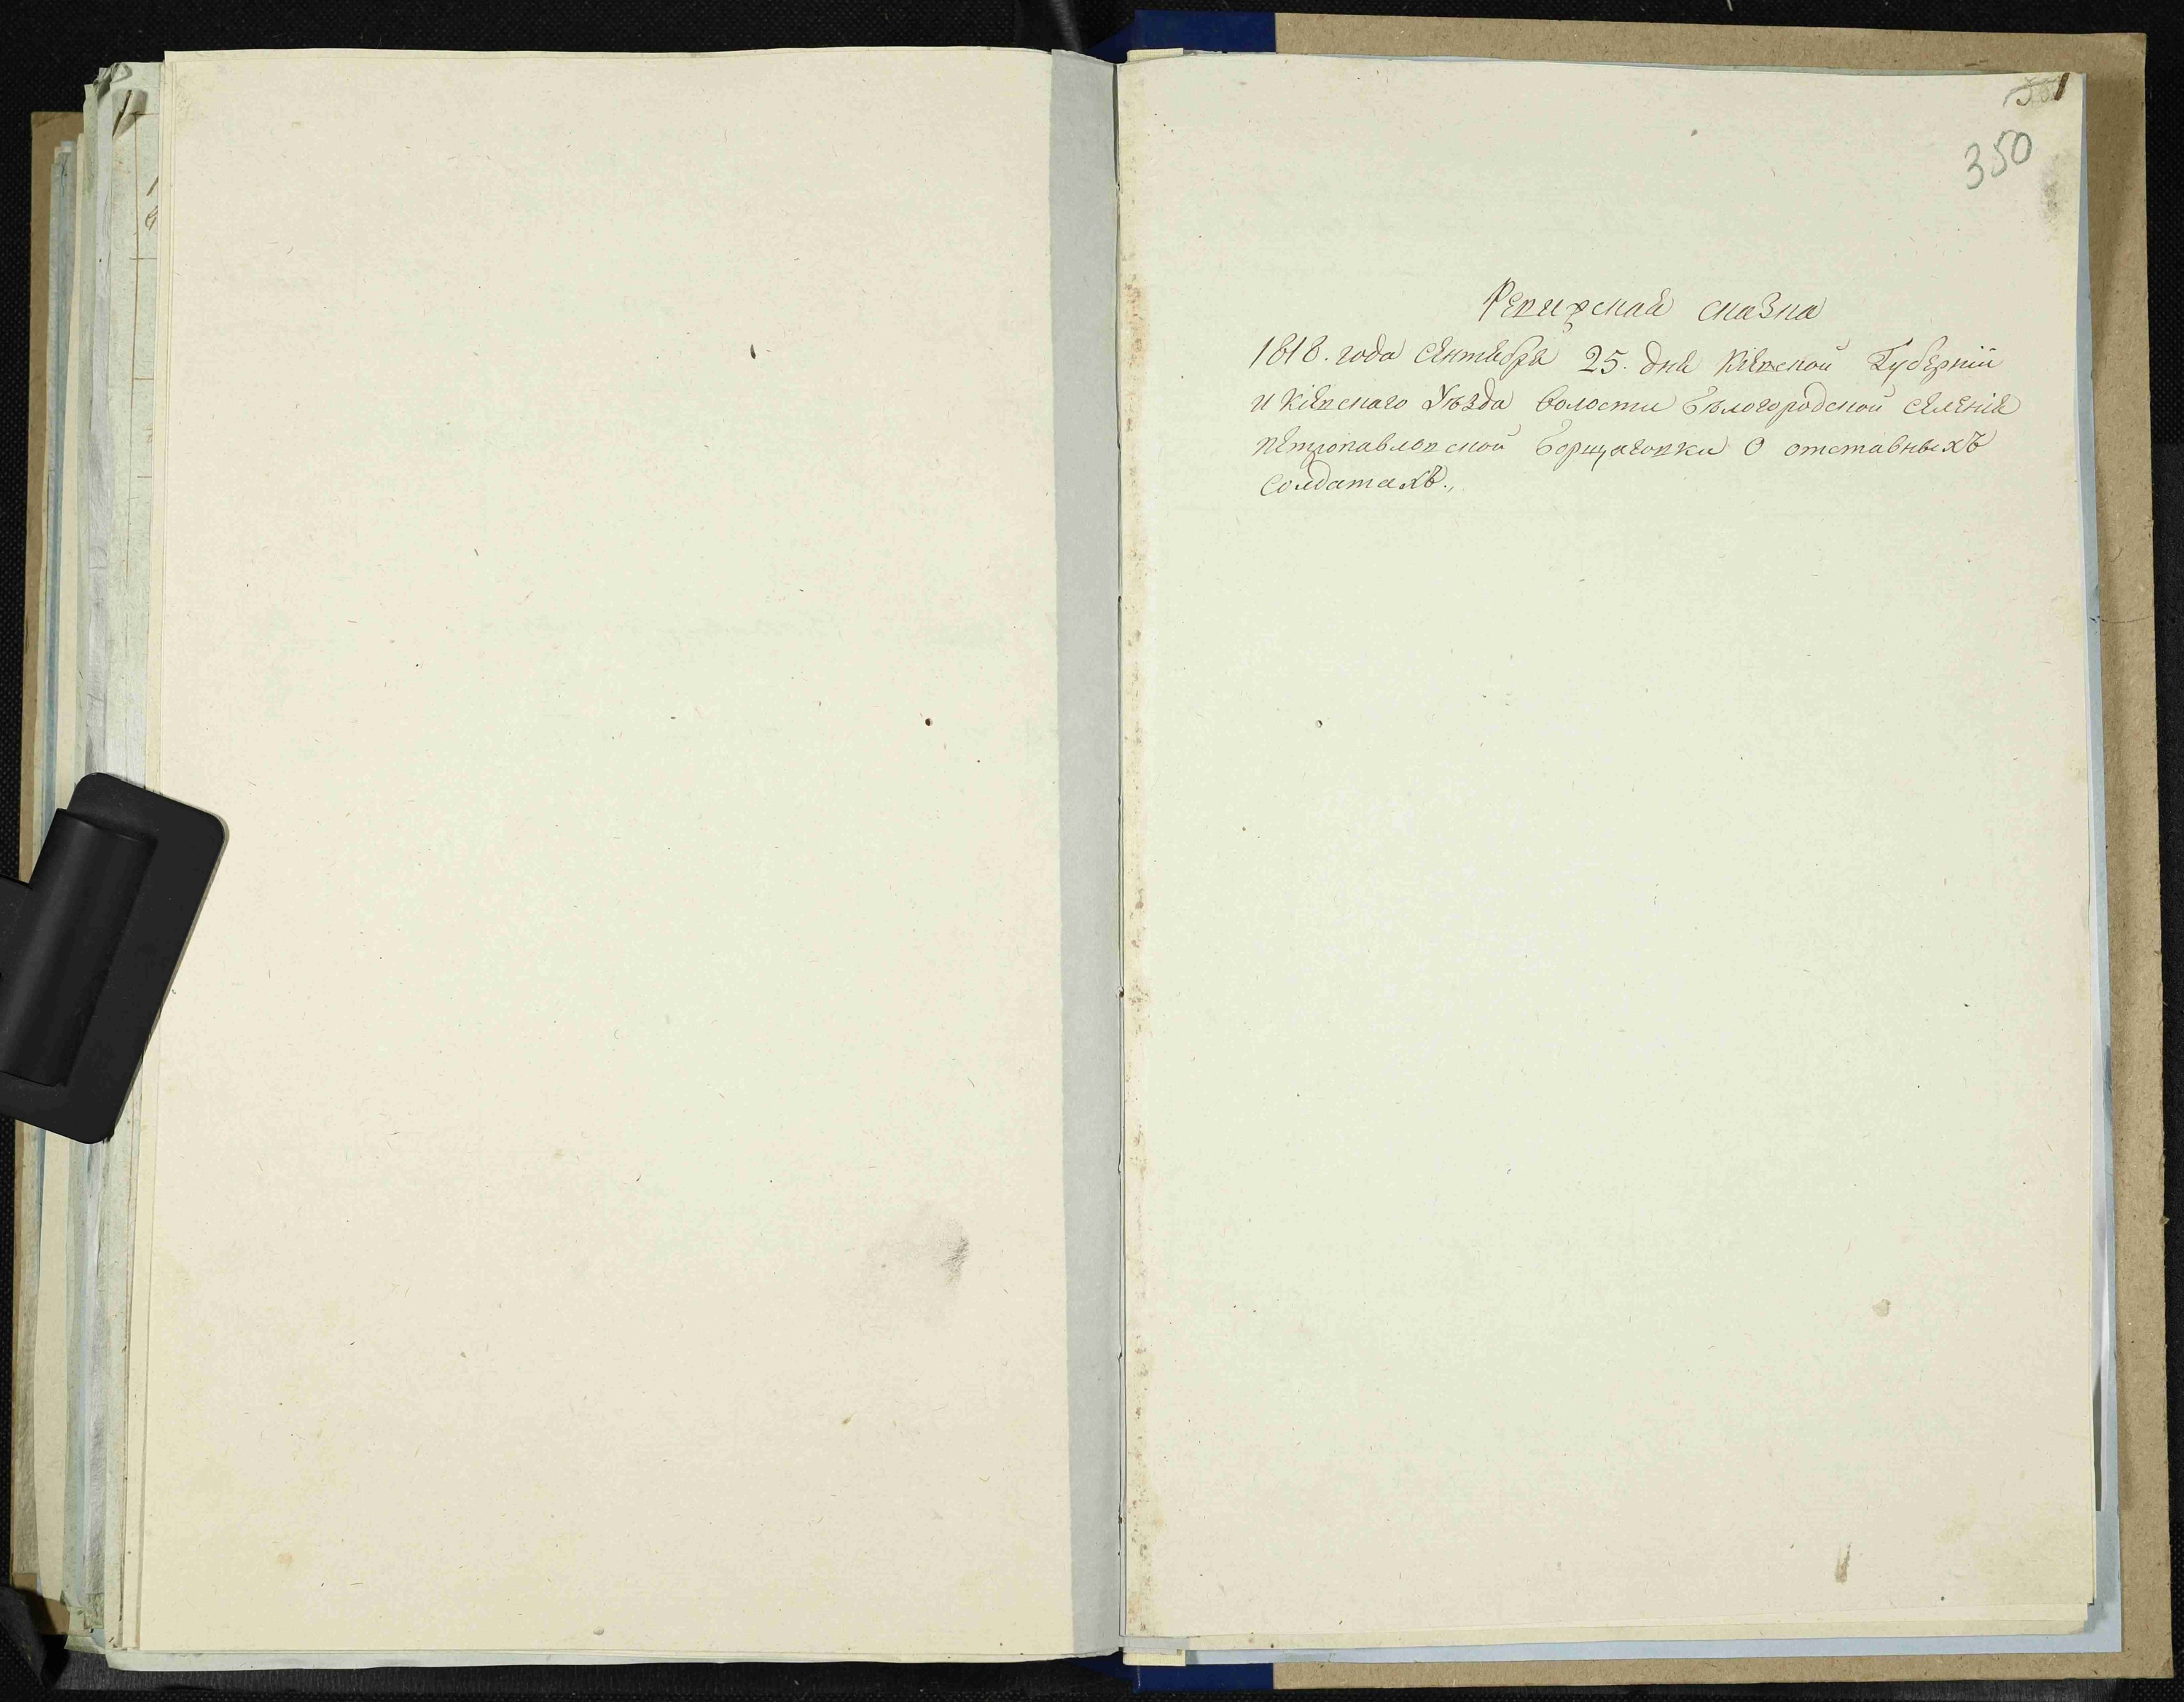 350
Ревизская сказка
1818. года сентября 25. дня Кіевской Губерніи
и Кіевскаго Уѣзда волости Бѣлогородской селенія
петропавловской Борщаговки О отставныхъ
солдатахъ.,